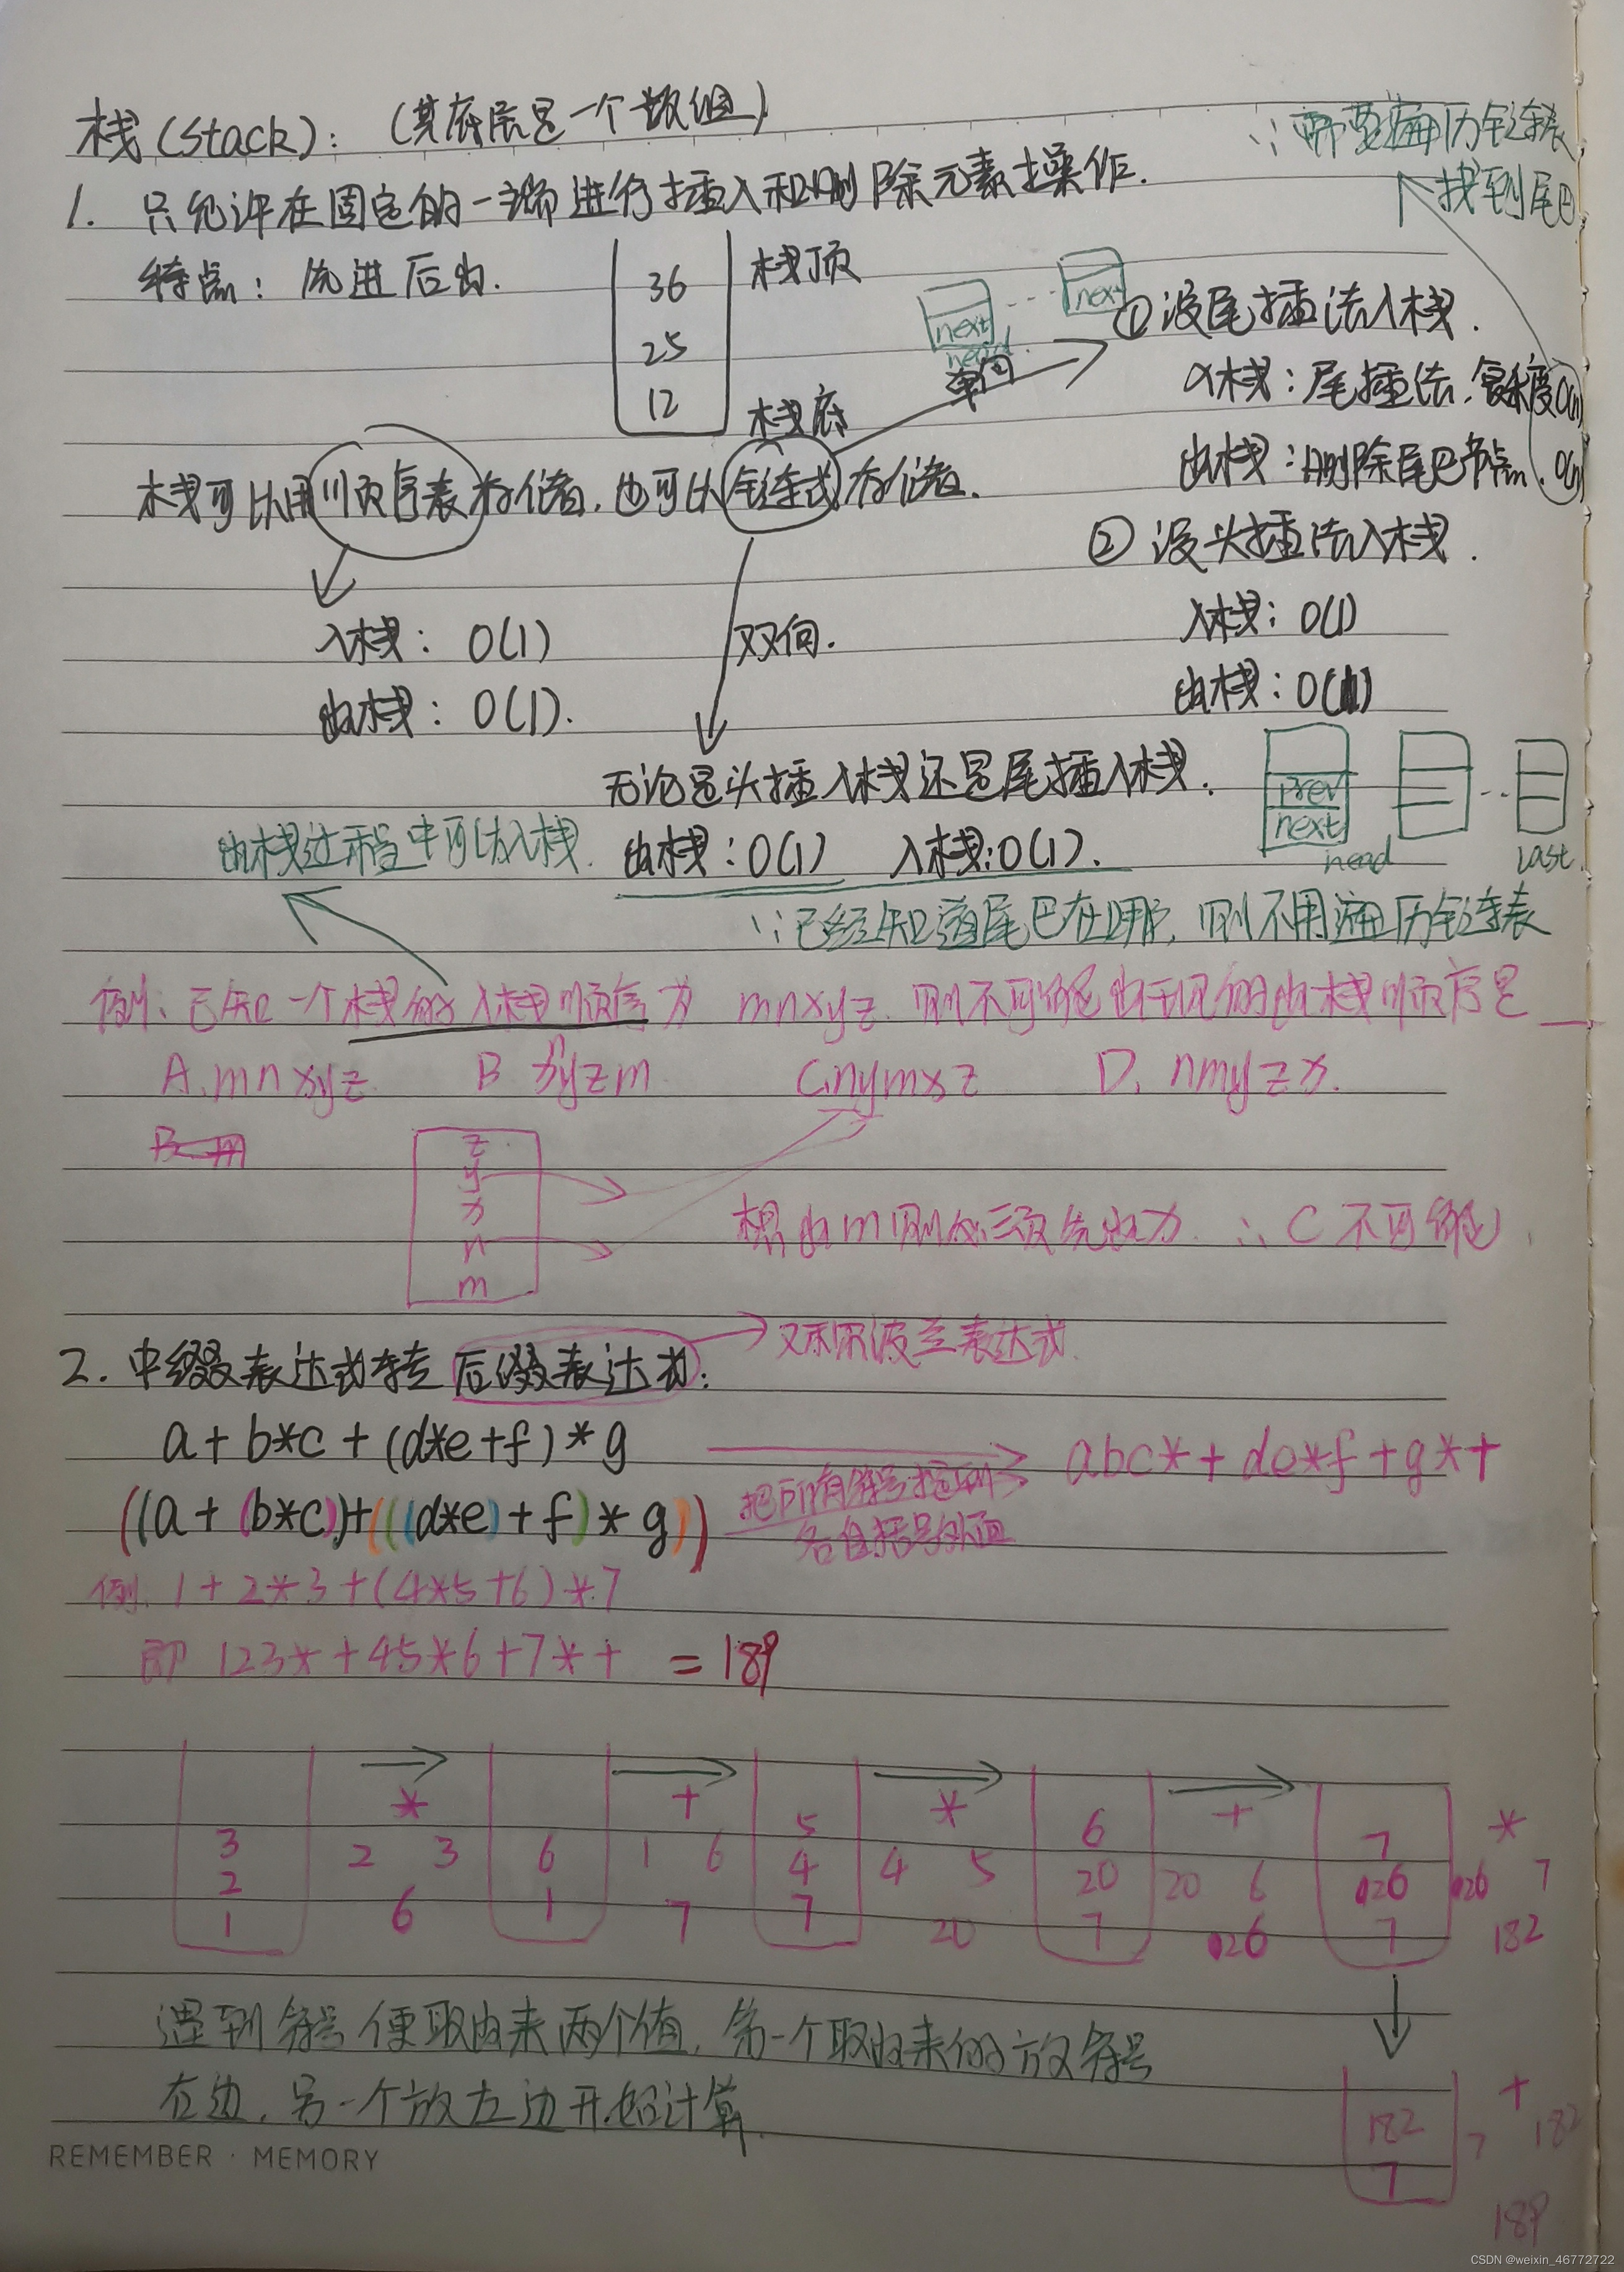 栈(Stack): (其底层是一个数组)
∵都要遍历链表
找到尾巴
1. 只允许在固定的一端进行插入和删除元素操作.
特点: 先进后出.
36
25
12
栈顶
栈底
next
head
next
单向
①设尾插法入栈.
入栈: 尾插法, 复杂度O(n)
出栈: 删除尾巴节点. O(n)
栈可以用顺序表存储, 也可以链式存储.
②设头插法入栈.
入栈: O(1)
出栈: O(1)
入栈: O(1)
出栈: O(1).
双向.
无论是头插入栈还是尾插入栈.
出栈: O(1) 入栈: O(1).
prev
next
head
last
出栈过程中可以入栈.
∵已经知道尾巴在哪, 则不用遍历链表
例: 已知一个栈的入栈顺序为 mnxyz. 则不可能出现的出栈顺序是__
A. mnxyz B xnyzm C. nymxz D. nmyzx.
z
y
x
n
m
想出m则必须先出x ∴C不可能.
2. 中缀表达式转后缀表达式:
又称波兰表达式
a+b*c+(d*e+f)*g
abc*+de*f+g*+
((a+(b*c))+(((d*e)+f)*g))
把所有符号提到
各自括号外面
例. 1+2*3+(4*5+6)*7
即 123*+45*6+7*+ =189
* + * + *
3 2 1
2 3 6
6 1
1 6 7
5 4 7
4 5 20
6 20 7
20 6 26
7 26 7
26 7 182
遇到符号便取出来两个值, 第一个取出来的放符号
右边, 另一个放左边开始计算.
182
7
+
7 182
189
REMEMBER · MEMORY
CSDN @weixin_46772722